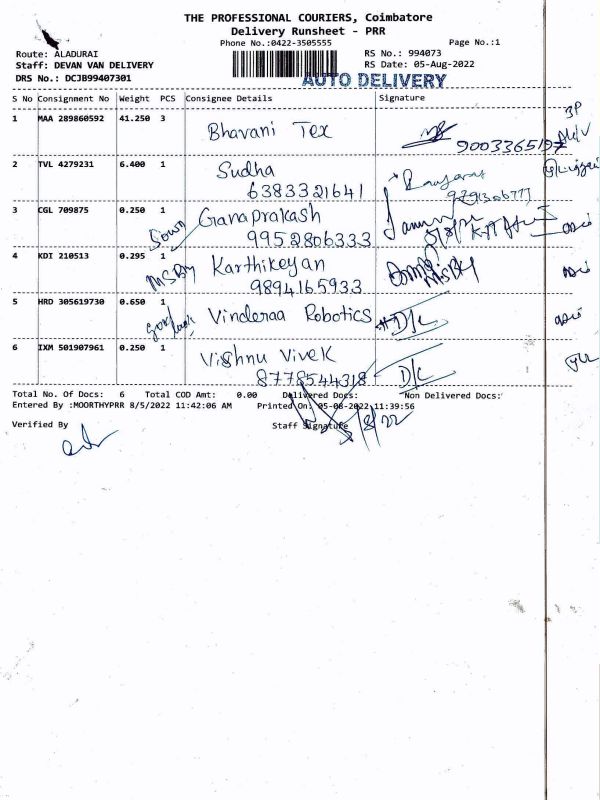 THE PROFESSIONAL COURIERS, Coimbatore
Delivery Runsheet - PRR
Phone No.:0422-3505555 Page No.:1
Route: ALADURAI RS No.: 994073
Staff: DEVAN VAN DELIVERY RS Date: 05-Aug-2022
DRS No.: DCJB99407301 AUTO DELIVERY
S No Consignment No Weight PCS Consignee Details Signature
1 MAA 289860592 41.250 3 Bhavani Tex 9003365197
2 TVL 4279231 6.400 1 Sudha
6383321641
3 CGL 709875 0.250 1 Ganaprakash
9952806333
4 KDI 210513 0.295 1 Karthikeyan
9894165933
5 HRD 305619730 0.650 1 Vinderaa Robotics D/c
6 IXM 501907961 0.250 1 Vishnu Vivek D/c
8778544318
Total No. Of Docs: 6 Total COD Amt: 0.00 Delivered Docs: Non Delivered Docs:
Entered By :MOORTHYPRR 8/5/2022 11:42:06 AM Printed On: 05-08-2022 11:39:56
Verified By Staff Signature 5/8/22